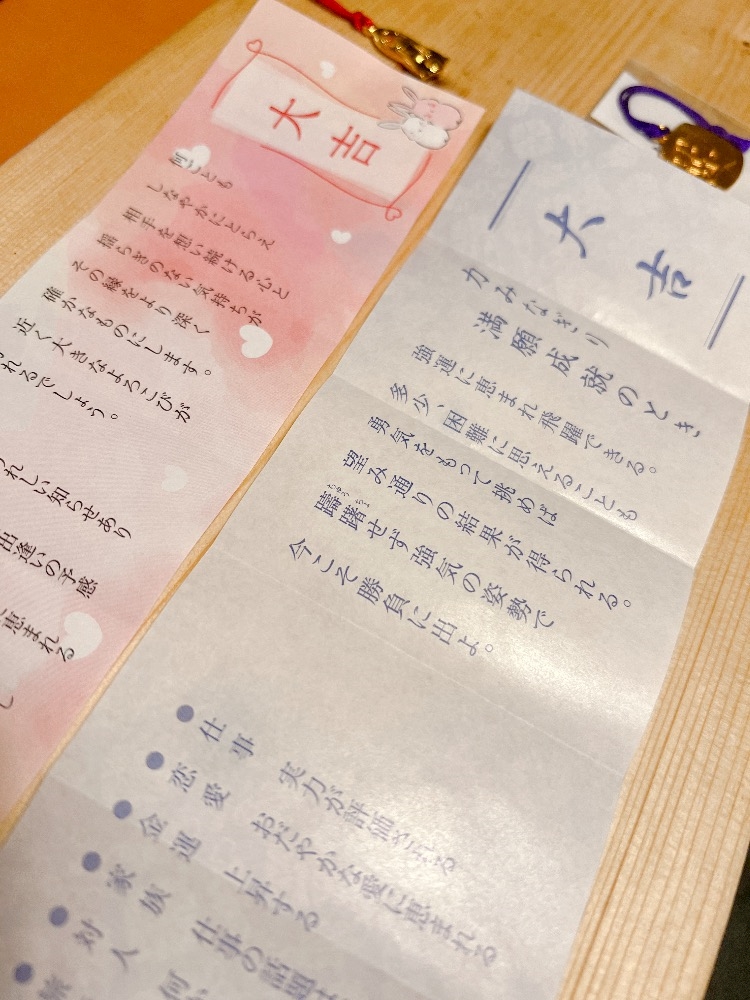 大吉
何ごとも
しなやかにとらえ
相手を想い続ける心と
揺らぎのない気持ちが
その縁をより深く
確かなものにします。
近く大きなよろこびが
れるでしょう。
れしい知らせあり
出逢いの予感
恵まれる
大吉
力みなぎり
満願成就のとき
強運に恵まれ飛躍できる。
多少、困難に思えることも
勇気をもって挑めば
望み通りの結果が得られる。
躊躇せず強気の姿勢で
ちゅうちょ
今こそ勝負に出よ。
●仕事 実力が評価される
●恋愛 おだやかな愛に恵まれる
●金運 上昇する
●家族 仕事の話題は
●対人 何
●旅